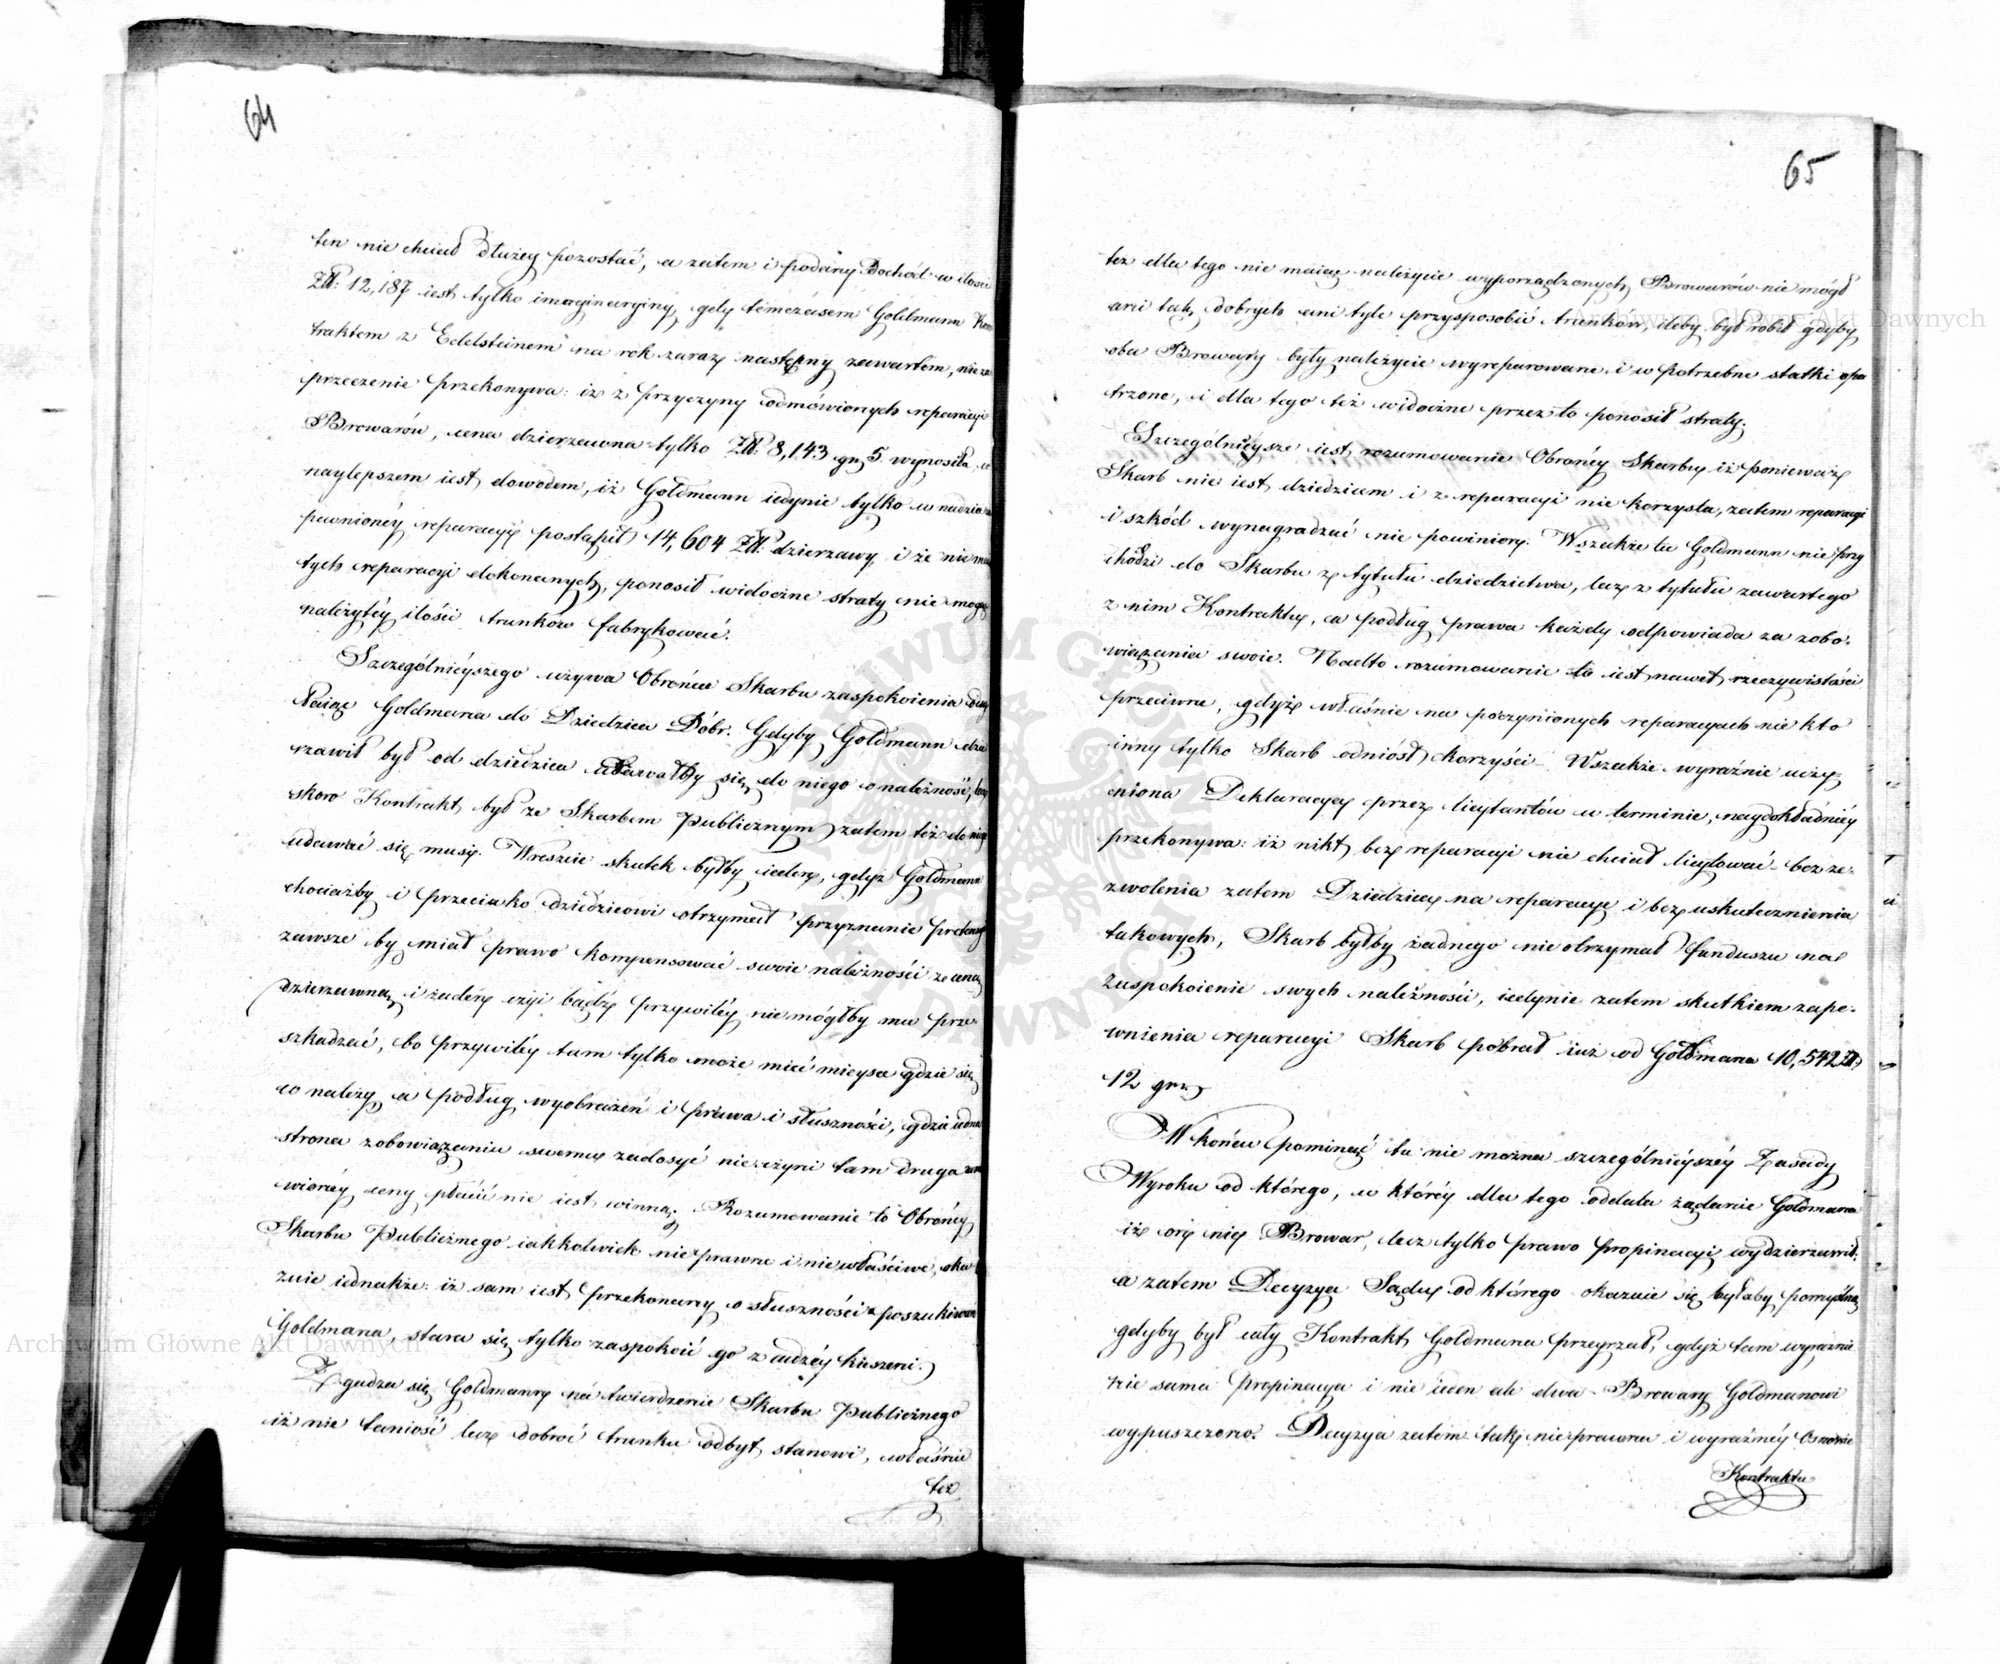 64
ten nie chciał dłużey pozostać, a zatem i podany Dochód w ilości
Złł: 12,187 iest tylko imaginaryiny, gdy tymczasem Goldmann Kon
traktem z Edelsteinem na rok zaraz następny zawartem, nieza
przeczenie przekonywa: iż z przyczyny odmówionych reparacyi
Browarów, cena dzierzawna tylko Złł: 8,143 gr 5 wynosiła, co
naylepszem iest dowodem, iż Goldmann iedynie tylko w nadziei za
pewnioney reparacyi postąpił 14,604 Złł: dzierzawy, i że nie ma
tych reparacyi dokonanych, ponosił widoczne straty nie mogąc
należytéy ilości trunków fabrykować.
Szczególnieyszego używa Obrońca Skarbu zaspokoienia odsy
łaiąc Goldmana do Dziedzica Dóbr. Gdyby Goldmann dzie
rzawił był od dziedzica udawałby się do niego o należność, lecz
skoro Kontrakt był ze Skarbem Publicznym zatem też do niego
udawać się musi. Wreszcie skutek byłby ieden, gdyż Goldmann
chociażby i przeciwko dziedzicowi otrzymał przyznanie pretensyi
zawsze by miał prawo kompensować swoie należności ze ceną
dzierzawną, i żaden czyi bądź przywiléy nie mógłby mu prze
szkadzać, bo przywiléy tam tylko może mieć mieysce gdzie się
co należy, a podług wyobrażeń i prawa i słuszności, gdzie iedna
strona zobowiązaniu swemu zadosyć nie czyni tam druga umó
wionéy ceny płacić nie iest winną. Rozumowanie to Obrońcy
Skarbu Publicznego iakkolwiek nieprawne i niewłaściwe, oka
zuie iednakże: iż sam iest przekonany o słuszności poszukiwań
Goldmana, stara się tylko zaspokoić go z cudzéy kieszeni.
Zgadza się Goldmann na twierdzenie Skarbu Publicznego
iż nie taniość lecz dobroć trunku odbyt stanowi, właśnie
też
65
też dla tego nie maiąc należycie wyporządzonych Browarów nie mógł
ani tak dobrych ani tyle przysposobić trunków, ileby był robił gdyby
oba Browary były należycie wyreparowane i w potrzebne statki opa
trzone, i dla tego też widoczne przez to ponosił straty.
Szczególnieysze iest rozumowanie Obrońcy Skarbu iż ponieważ
Skarb nie iest dziedzicem i z reparacyi nie korzysta, zatem reparacyi
i szkód wynagradzać nie powinien. Wszakże tu Goldmann nie przy
chodzi do Skarbu z tytułu dziedzictwa, lecz z tytułu zawartego
z nim Kontraktu, a podług prawa każdy odpowiada za zobo-
wiązania swoie. Nadto rozumowanie to iest nawet rzeczywistości
przeciwne, gdyż właśnie na poczynionych reparacyach nie kto
inny tylko Skarb odniósł korzyści. Wszakże wyraźnie uczy-
niona Deklaracya przez licytantów w terminie, naydokładniéy
przekonywa: iż nikt bez reparacyi nie chciał licytować bez ze-
zwolenia zatem Dziedzica na reparacye i bez uskutecznienia
takowych, Skarb byłby żadnego nie otrzymał funduszu na
zaspokoienie swych należności, iedynie zatem skutkiem zape-
wnienia reparacyi Skarb pobrał iuż od Goldmana 10,542 Zł
12 gr.
W końcu pominąć tu nie można szczególnieyszéy Zasady
Wyroku od którego, w któréy dla tego oddala żądanie Goldmana
iż on nie Browar, lecz tylko prawo propinacyi wydzierzawił:
a zatem Decyzya Sądu od którego okazuie się byłaby pomyślną
gdyby był cały Kontrakt Goldmana przeyrzał, gdyż tam wyraźnie
nie sama propinacya i nie ieden ale dwa Browary Goldmanowi
wypuszczono. Decyzya zatem tak nieprawna i wyraźnéy Osnowie
Kontraktu